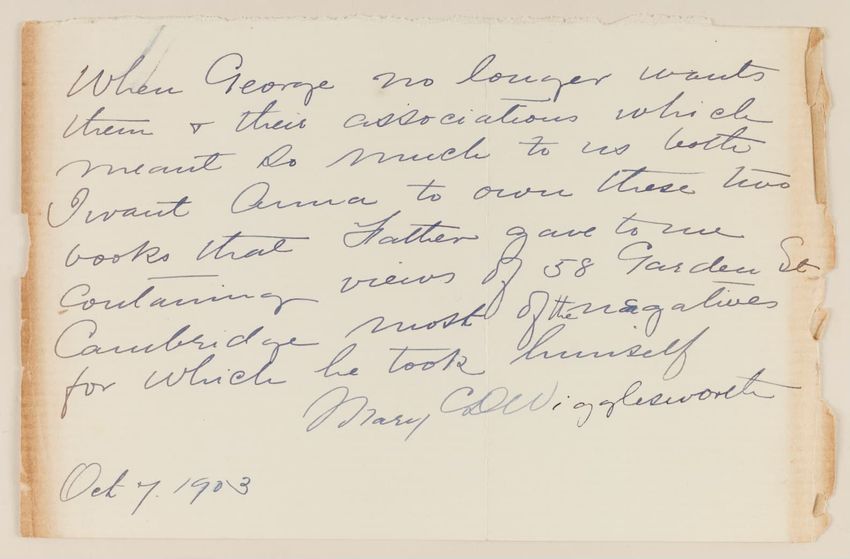 When George no longer wants
them & their associations which
meant so much to us both
I want Anna to own these two
books that Father gave to me
containing views of 58 Garden St
Cambridge most of the nagatives
for which he took himself
Mary CDW igglesworth
Oct 7. 1903